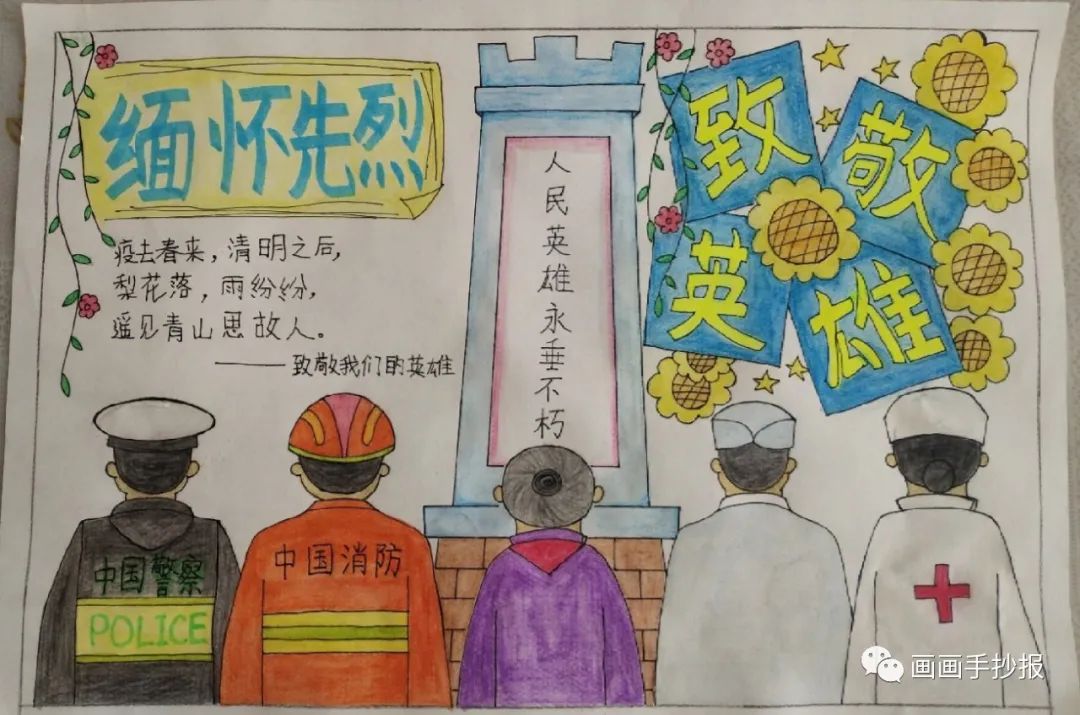 缅怀先烈
疫去春来，清明之后，
梨花落，雨纷纷，
遥见青山思故人。
——致敬我们的英雄
人民英雄永垂不朽
致敬
英雄
中国警察
POLICE
中国消防
画画手抄报